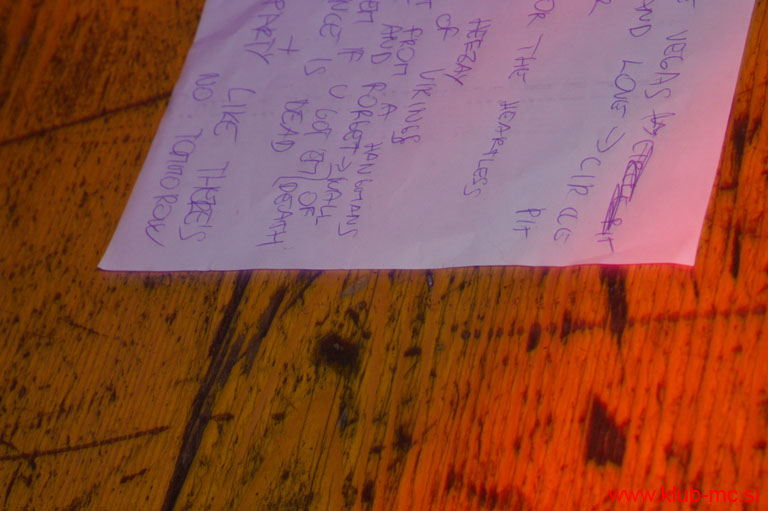 VEGAS
AND LOVE => CIRCLE
PIT
OR THE HEARTLESS
HEEZAY
OF VIKINGS
FROM A HANGMANS
AND FORGET => WALL
IF U GOT EM OF
IS DEAD (DEATH
+
PARTY LIKE THERE'S
NO TOMMOROW
www.klub-mc.si